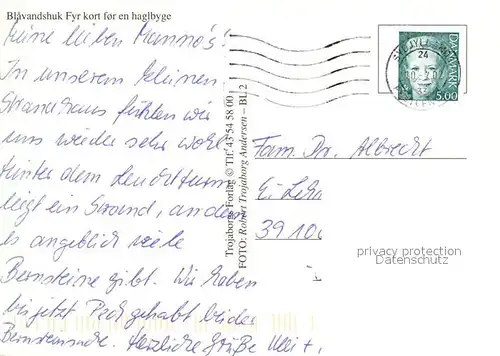 Blåvandshuk Fyr kort før en haglbyge
Meine lieben Manno's!
In unserem kleinen
Strandhaus fühlen wir
uns wieder sehr wohl
Hinter dem Leuchtturm
liegt ein Strand, an dem
es angeblich viele
Bernsteine gibt. Wir haben
bis jetzt Pech gehabt bei der
Bernsteinsuche. Herzliche Grüße
Trojaborgs Forlag © Tlf. 43 54 58 00
FOTO: Robert Trojaborg Andersen – BL 2
DANMARK
5.00
24
Fam. Dr. Albrecht
39 10
privacy protection
Datenschutz